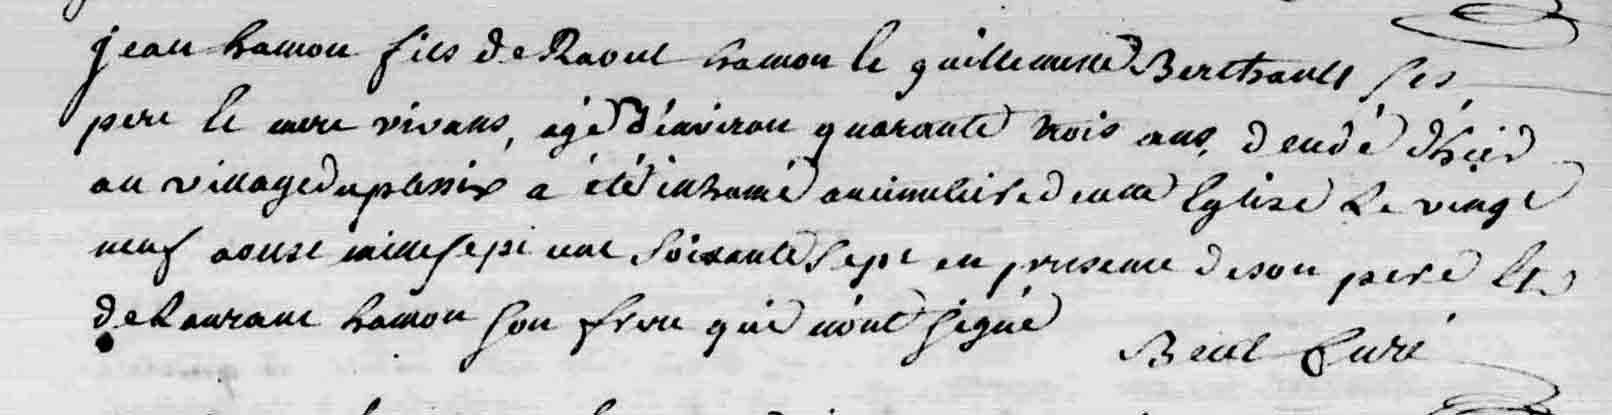 jean hamon fils de Raoul hamon le guillemette Berthault ses
pere le mere vivans, agé d'environ quarante trois ans, decedé d'hier
au village du plessix a été inhumé au cimetiere de cette Eglise Le vingt
neuf aoust mille sept cent soixante sept en presence de son pere et
de Laurant hamon son frere qui n'ont signé
curé